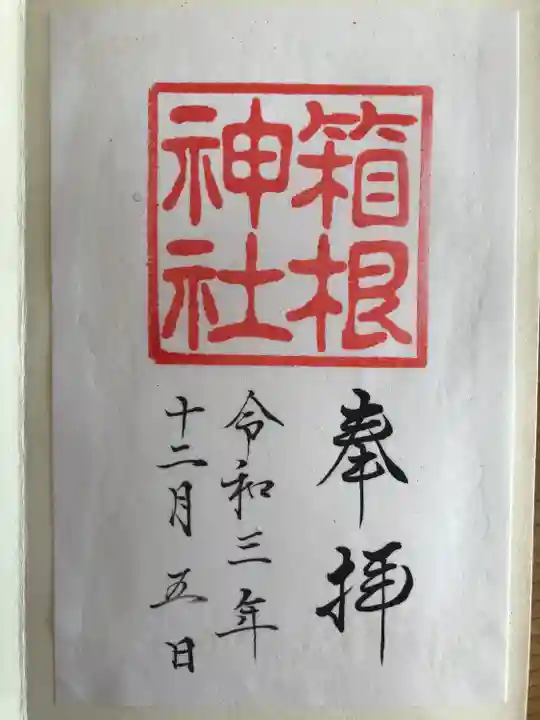 箱根
神社
奉拝
令和三年
十二月五日